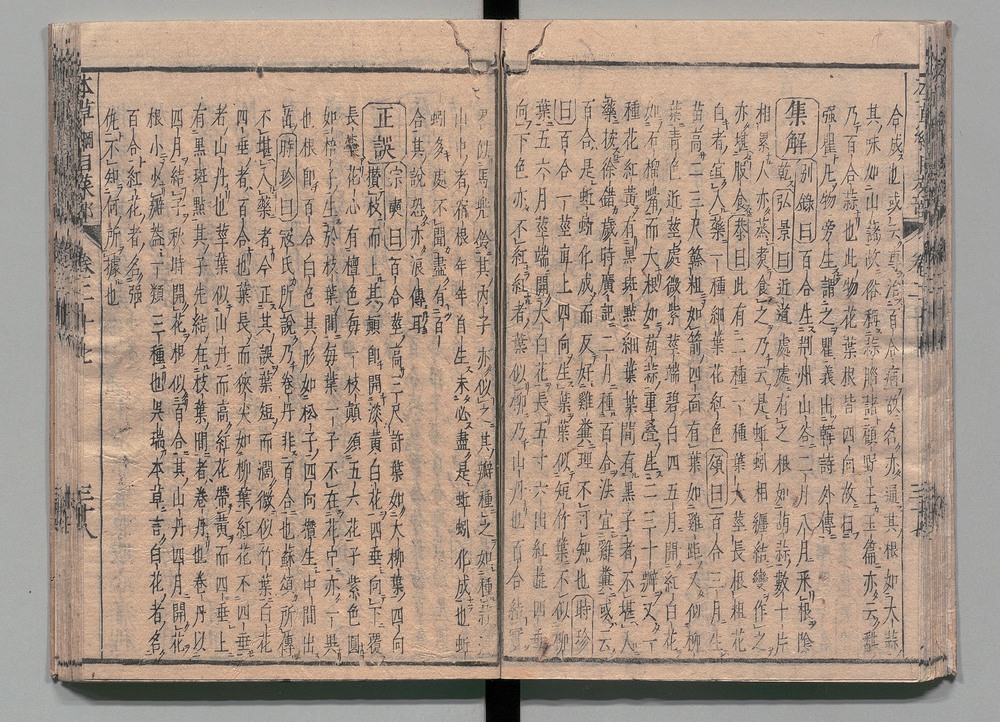 合成也或云專治百合病故名亦通其根如大蒜
其味如山藷故俗稱蒜腦藷顧野王玉篇亦云䪥
乃百合蒜也此物花葉根皆四向故曰
強瞿凡物旁生謂之瞿義出韓詩外傳
集解 別錄曰百合生荊州山谷二月八月采根陰
乾弘景曰近道處處有之根如葫蒜數十片
相累人亦蒸煮食之乃云是蚯蚓相纏結變作之
亦堪服食恭曰此有二種一種葉大莖長根粗花
白者宜入藥一種細葉花紅色頌曰百合三月生
苗高二三尺簳粗如箭四面有葉如雞距又似柳
葉青色近莖處微紫莖端碧白四五月開紅白花
如石榴嘴而大根如葫蒜重疊生二三十瓣又一
種花紅黃有黑斑點細葉葉間有黑子者不堪入
藥按徐鍇歲時廣記二月種百合法宜雞糞或云
百合是蚯蚓化成而反好雞糞理不可知也時珍
曰百合一莖直上四向生葉葉似短竹葉不似柳
葉五六月莖端開大白花長五寸六出紅蕊四垂
向下色亦不紅紅者葉似柳乃山丹也百合結實
略似馬兜鈴其內子亦似之其瓣種之如種蒜法
山中者宿根年年自生未必盡是蚯蚓化成也蚯
蚓多處不聞盡有百
合其說恐亦浪傳耳
正誤 宗奭曰百合莖高三尺許葉如大柳葉四向
攢枝而上其顛即開淡黃白花四垂向下覆
長蕊花心有檀色每一枝顛須五六花子紫色圓
如梓子生於枝葉間每葉一子不在花中亦一異
也根即百合白色其形如松子四向攢生中間出
苗時珍曰寇氏所說乃卷丹非百合也蘇頌所傳
不堪入藥者今正其誤葉短而闊微似竹葉白花
四垂者百合也葉長而狹尖如柳葉紅花不四垂
者山丹也莖葉似山丹而高紅花帶黃而四垂上
有黑斑點其子先結在枝葉間者卷丹也卷丹以
四月結子秋時開花根似百合其山丹四月開花
根小少瓣蓋一類三種也吳瑞本草言白花者名
百合紅花者名強
仇不知何所據也